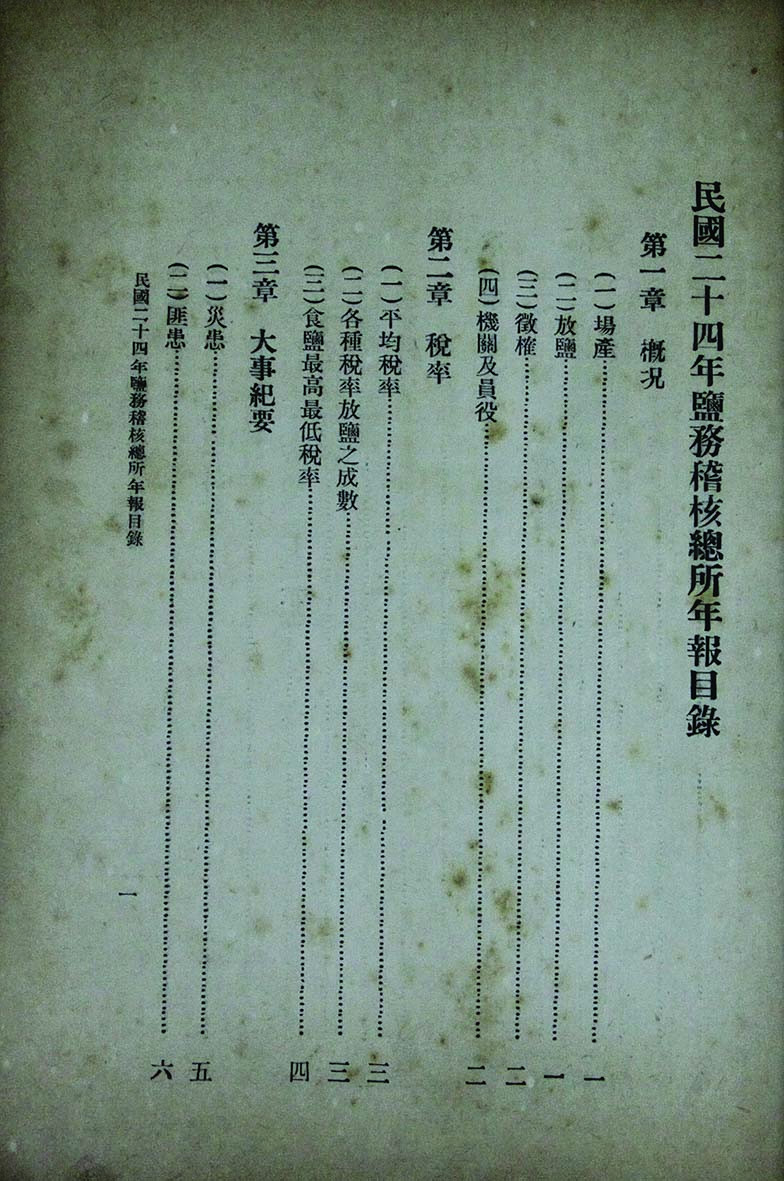 民國二十四年鹽務稽核總所年報目錄
第一章 概况
(一)場產……一
(二)放鹽……一
(三)徵榷……二
(四)機關及員役……二
第二章 稅率
(一)平均稅率……三
(二)各種稅率放鹽之成數……三
(三)食鹽最高最低稅率……四
第三章 大事紀要
(一)災患……五
(二)匪患……六
民國二十四年鹽務稽核總所年報目錄
一